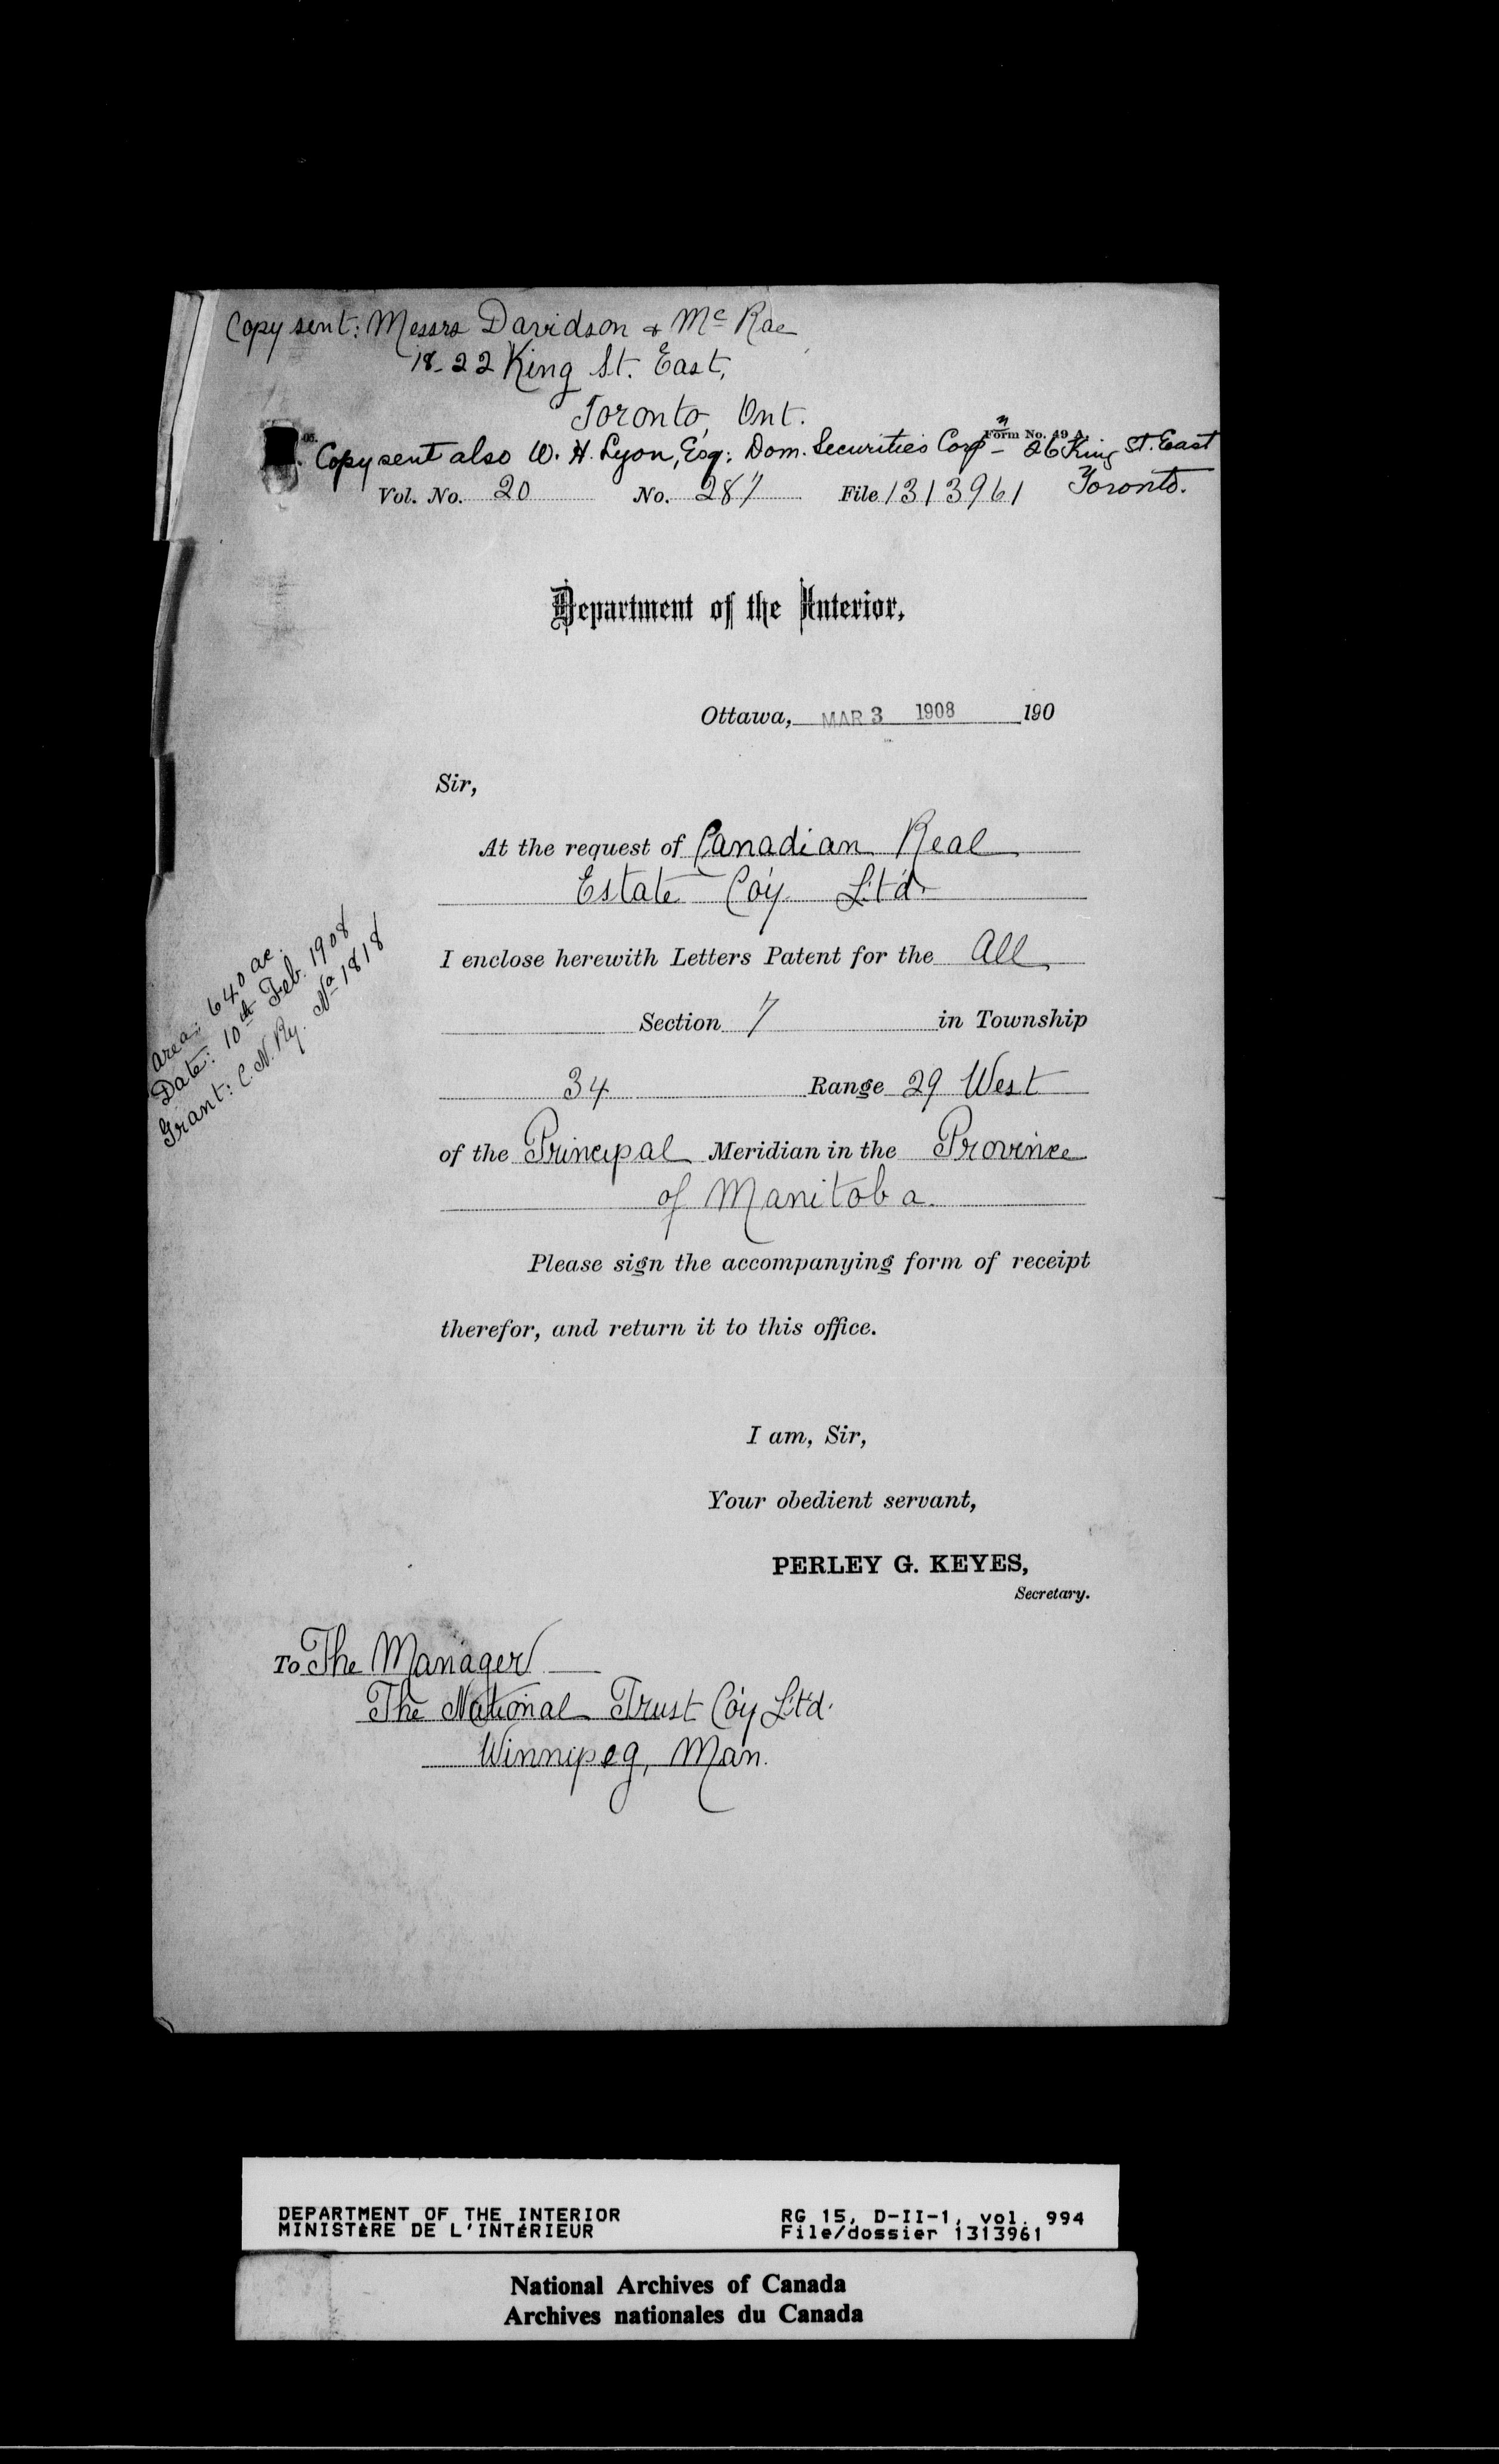 Copy sent: Messrs Davidson & Mc Rae
18-22 King St. East,
Toronto, Ont.
Form No. 49 A.
Copy sent also W. H. Lyon, Esq: Dom. Securities Corpn - 26 King St. East
Toronto.
Vol. No. 20 No. 287 File 1313961
Department of the Interior,
Ottawa, MAR 3 1908 190
Sir,
At the request of Canadian Real
Estate Co'y Lt'd.
I enclose herewith Letters Patent for the All
Section 7 in Township
34 Range 29 West
of the Principal Meridian in the Province
of Manitoba.
Area: 640 ac.
Date: 10th Feb. 1908
Grant: C. N. Ry. No 1818
Please sign the accompanying form of receipt
therefor, and return it to this office.
I am, Sir,
Your obedient servant,
PERLEY G. KEYES,
Secretary.
To The Manager
The National Trust Co'y Lt'd.
Winnipeg, Man.
DEPARTMENT OF THE INTERIOR RG 15, D-II-1, vol. 994
MINISTÈRE DE L'INTÉRIEUR File/dossier 1313961
National Archives of Canada
Archives nationales du Canada